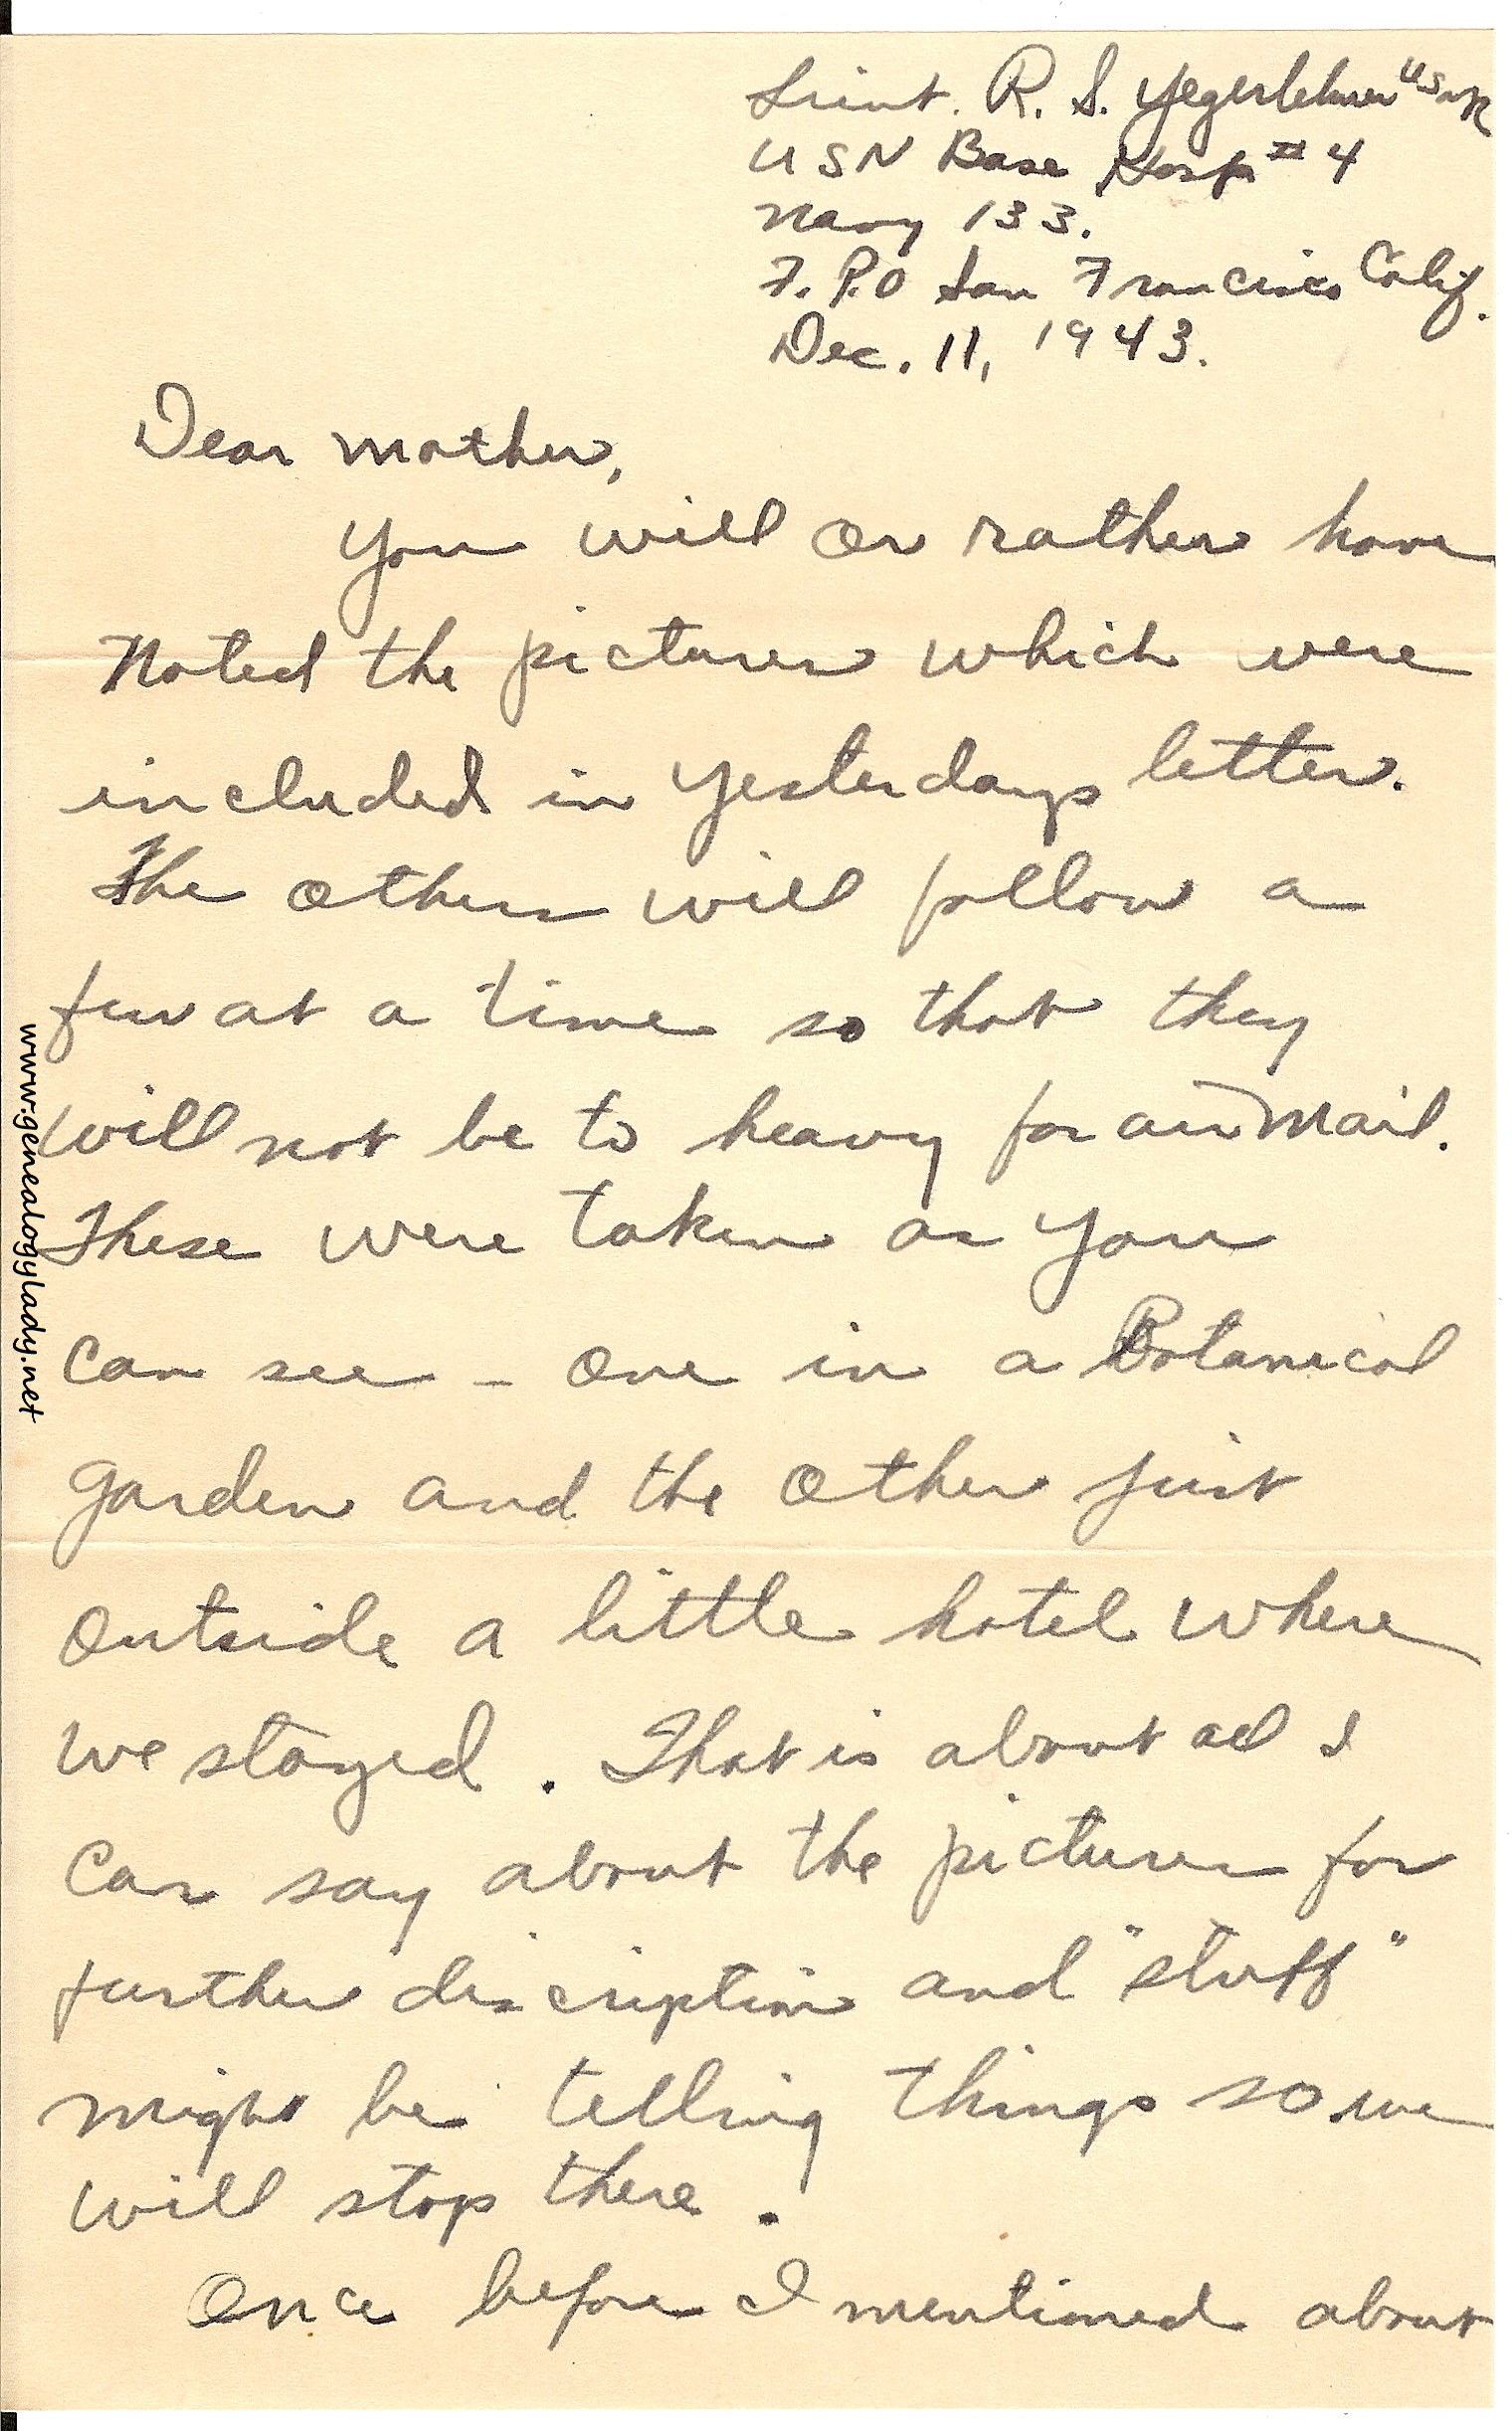 Lieut. R. S. Yegerlehner USNR
USN Base Hosp # 4
Navy 133.
F. P.O San Francisco Calif.
Dec. 11, 1943.
Dear Mother,
You will or rather have
noted the pictures which were
included in yesterdays letter.
The others will follow a
few at a time so that they
will not be to heavy for air mail.
These were taken as you
can see – one in a Botanical
garden and the other just
outside a little hotel where
we stayed. That is about all I
can say about the pictures for
further discription and "stuff"
might be telling things so we
will stop there.
Once before I mentioned about
www.genealogylady.net